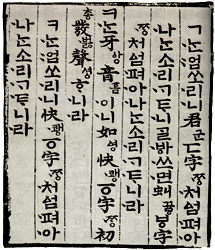 ㄱᄂᆞᆫ엄쏘리니君군ㄷ字ᄍᆞᆼ처ᅀᅥᆷ펴아
나ᄂᆞᆫ소리ᄀᆞᄐᆞ니ᄀᆞᆯᄫᅡ쓰면虯뀨ᇢㅸ字
ᄍᆞᆼ처ᅀᅥᆷ펴아나ᄂᆞᆫ소리ᄀᆞᄐᆞ니라
ㅋᄂᆞᆫ牙앙音ᅙᅳᆷ이니如ᅀᅧᆼ快쾡ᅙ字ᄍᆞᆼ初
총發벓聲셩ᄒᆞ니라
ㅋᄂᆞᆫ엄쏘리니快쾡ᅙ字ᄍᆞᆼ처ᅀᅥᆷ펴아
나ᄂᆞᆫ소리ᄀᆞᄐᆞ니라